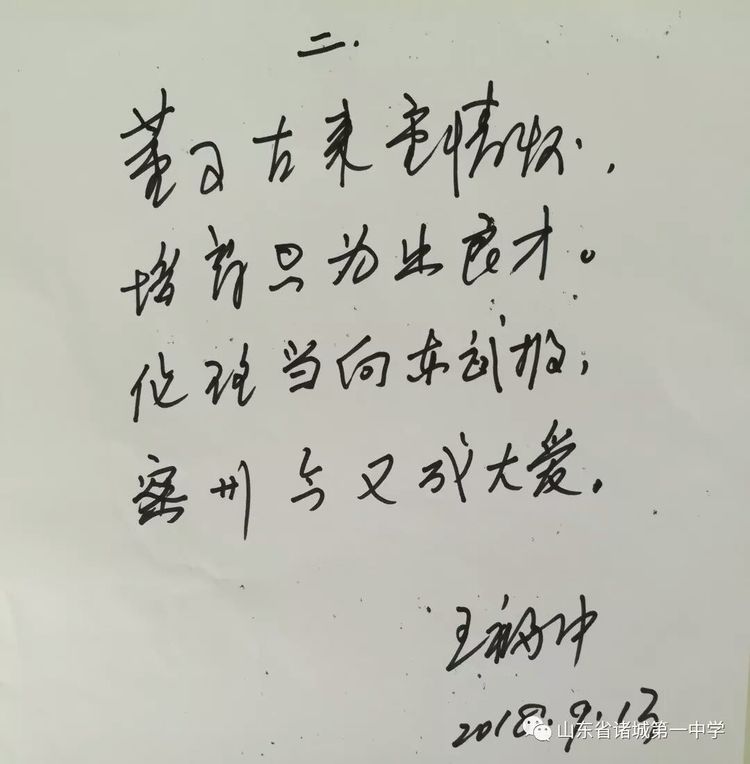 二.
董子古来重情怀,
培育只为出良才。
伦理当向东武报,
密州今又成大爱。
王
2018.9.13
山东省诸城第一中学